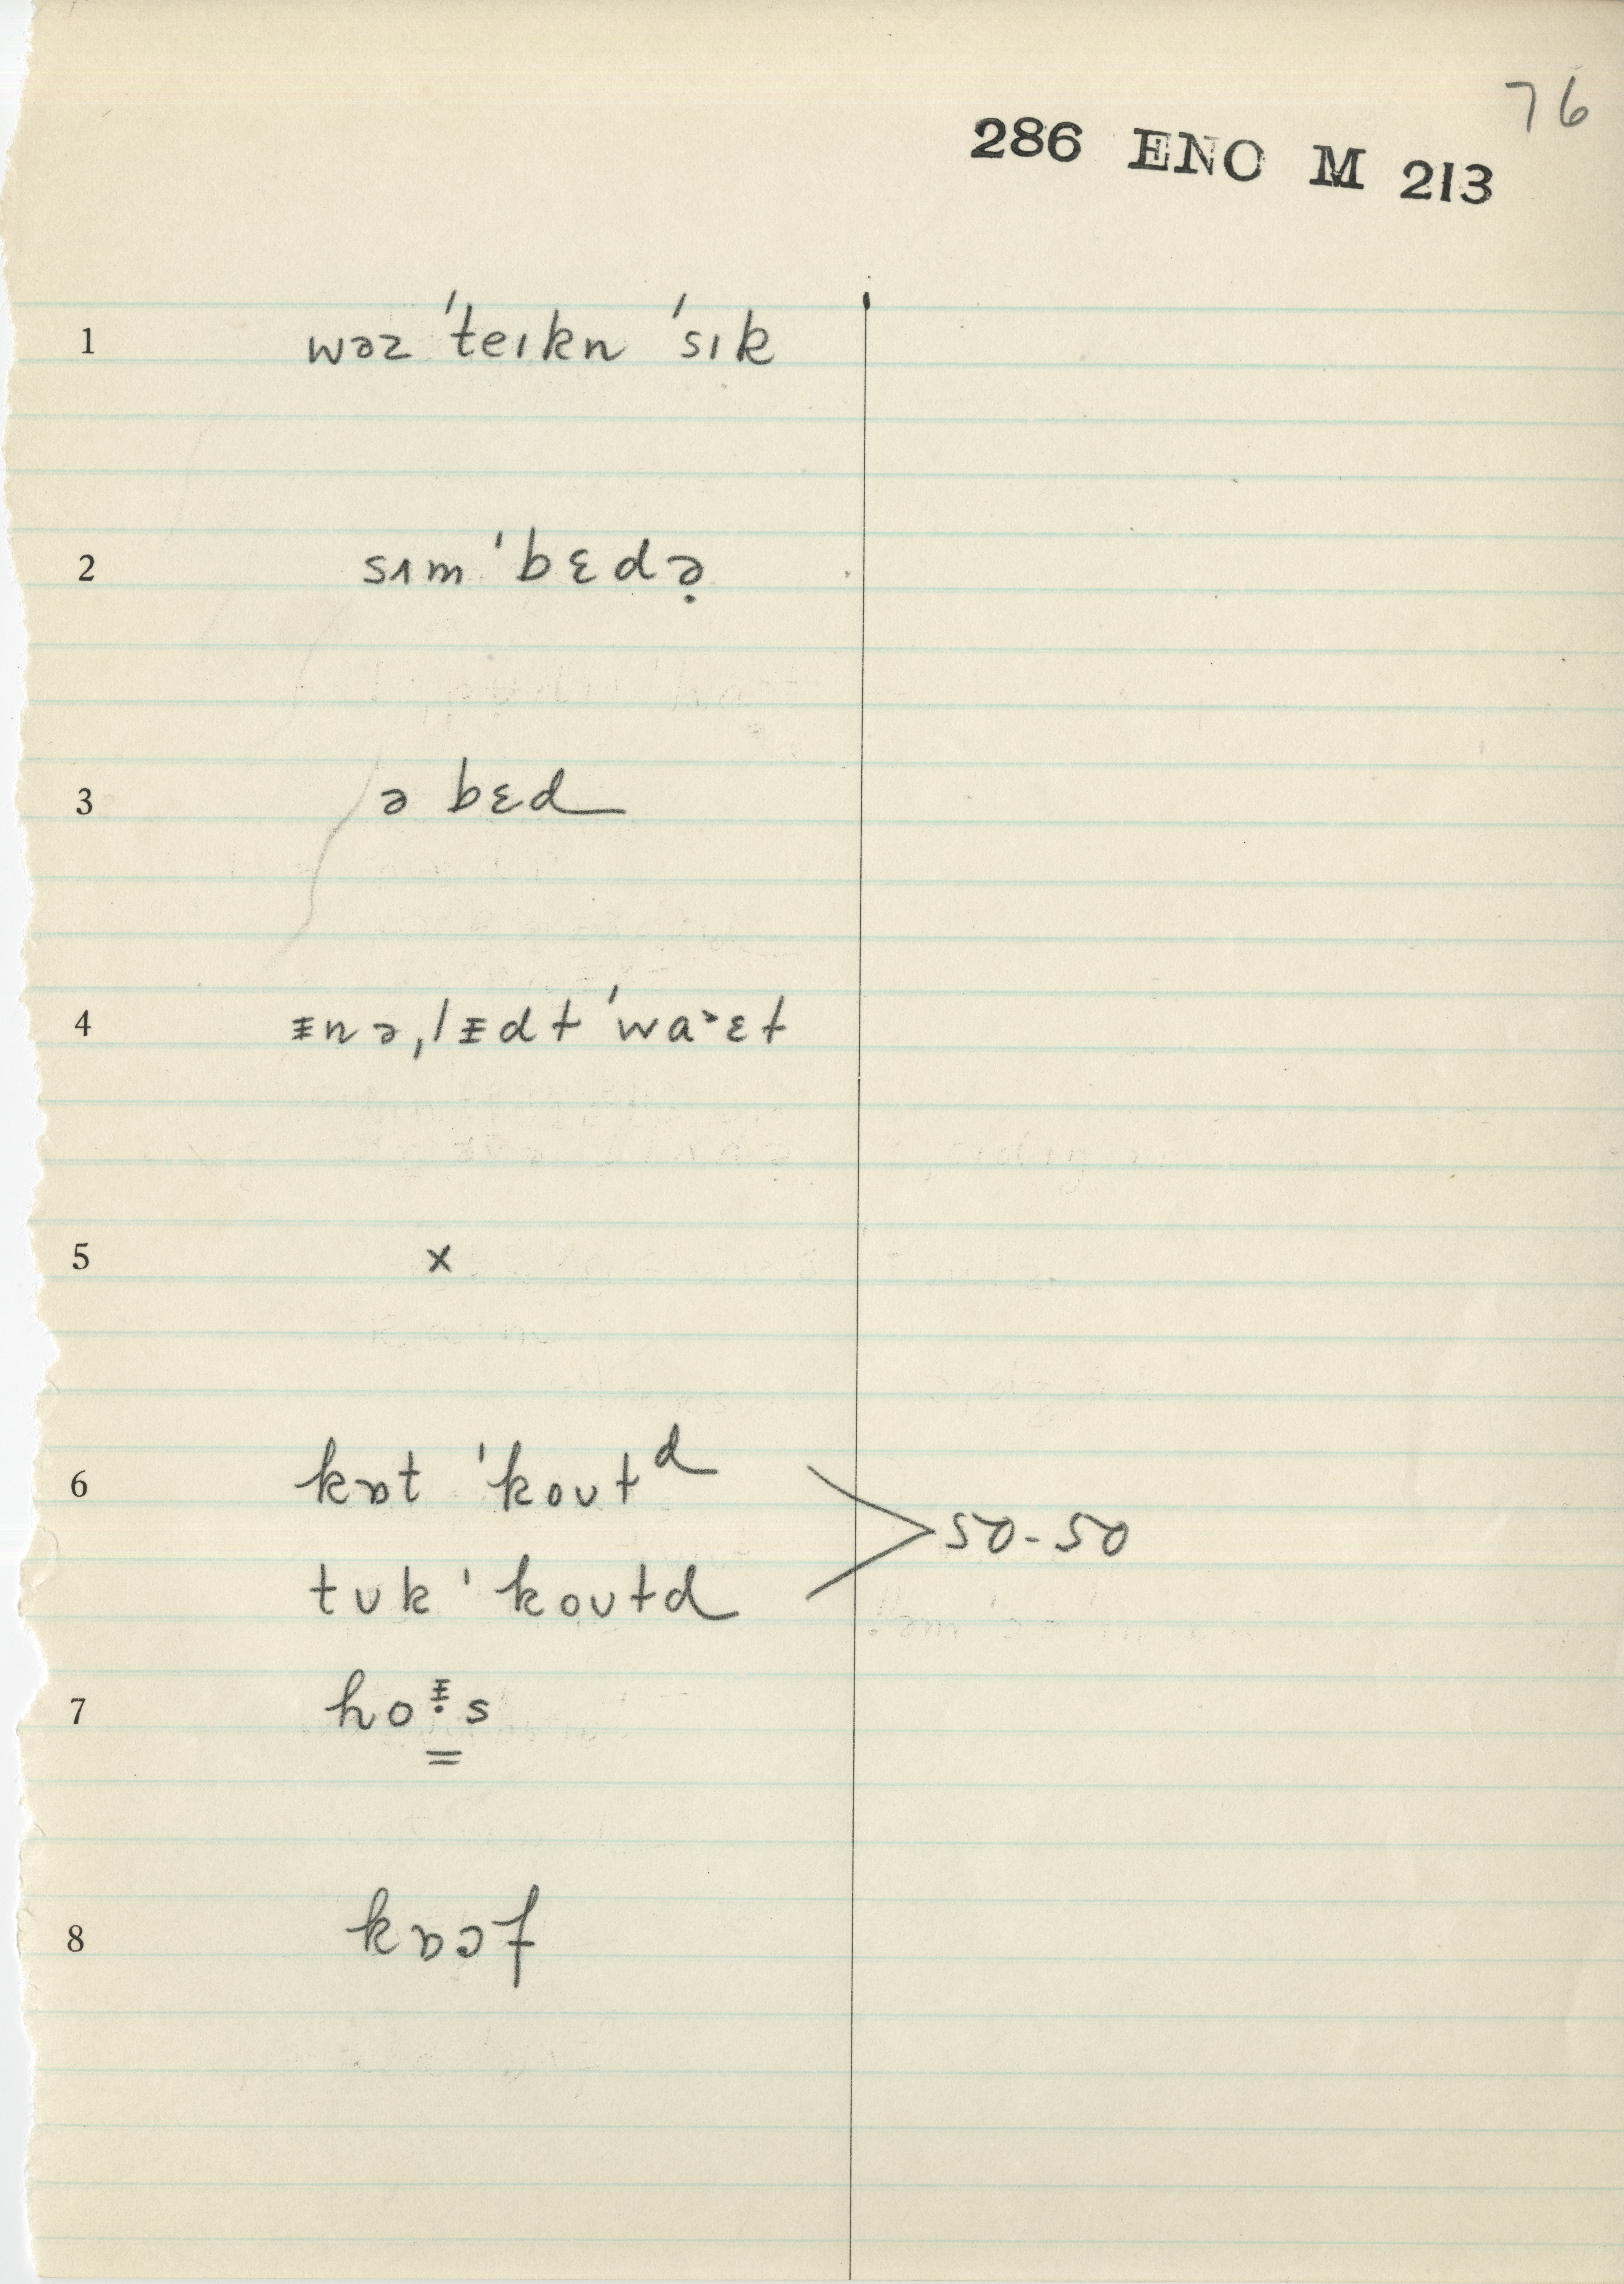 76
286 ENO M 213
1 wəz ˈteɪkn ˈsɪk
2 sɪm ˈbɛdə̣
3 ə bɛd
4 ᵻnəˌlᵻdt ˈwaˑɛt
5 x
6 kɒt ˈkoʊtᵈ
50-50
tʊk ˈkoʊtd
7 ho s
8 kɒɔf